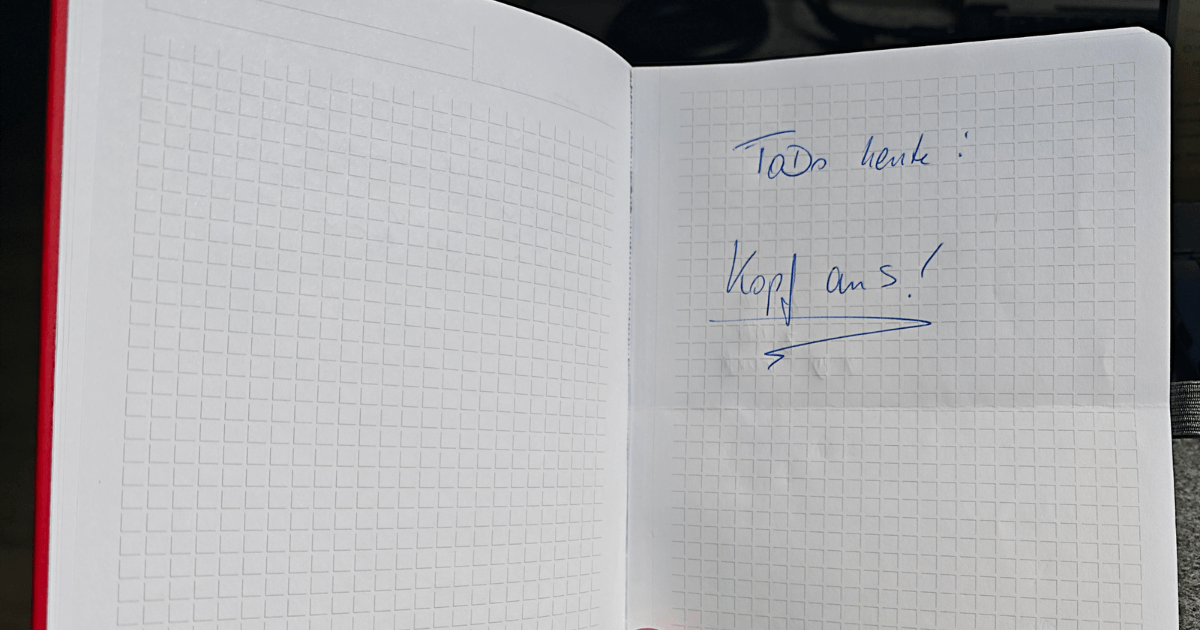 ToDo heute:
Kopf aus!